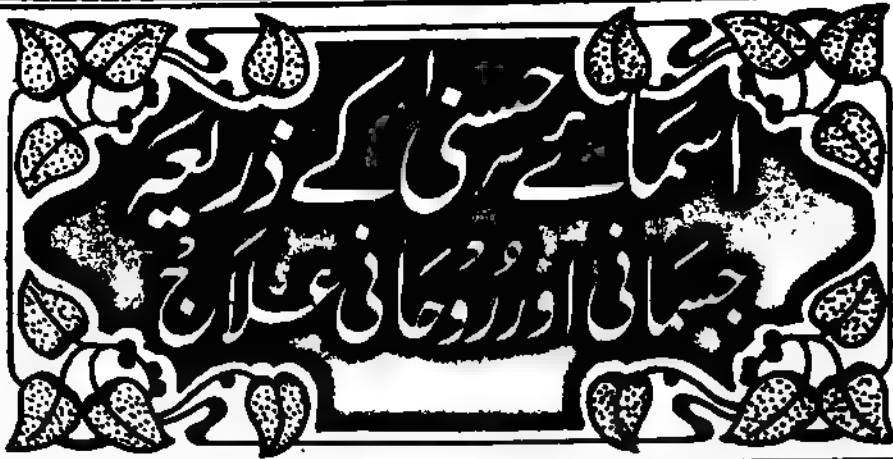 اسمائے حسنیٰ کے ذریعہ
جسمانی اور رُوحانی علاج